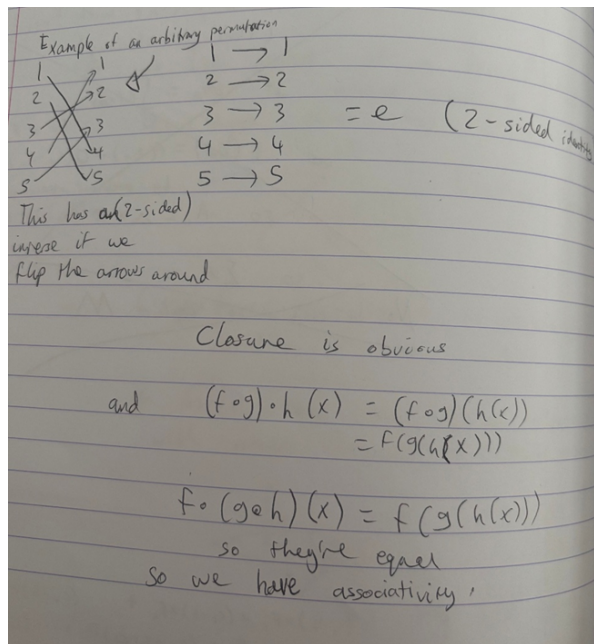 Example of an arbitrary permutation
1 1
2 2
3 3
4 4
5 5
1 → 1
2 → 2
3 → 3
4 → 4
5 → 5
= e (2-sided identity
This has a (2-sided)
inverse if we
flip the arrows around
Closure is obvious
and (f∘g)∘h (x) = (f∘g)(h(x))
= f(g(h(x)))
f∘(g∘h)(x) = f(g(h(x)))
so they're equal
so we have associativity.